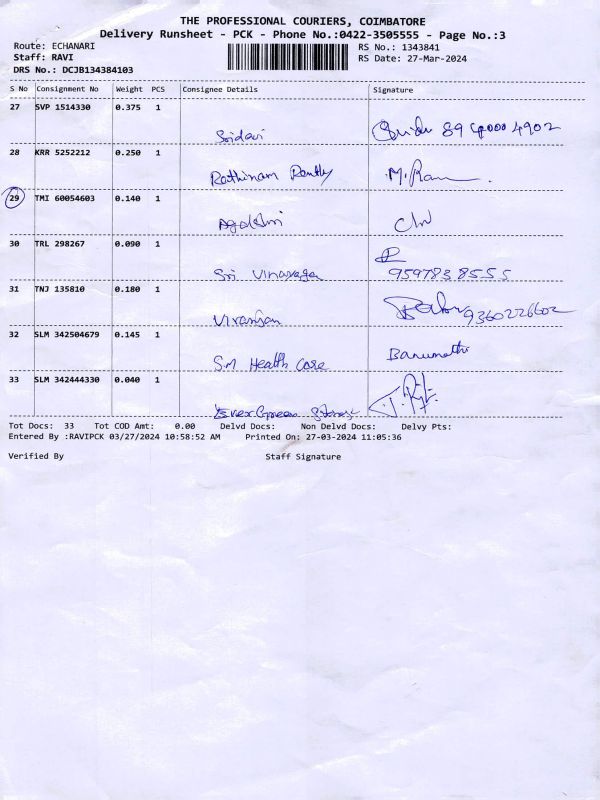 THE PROFESSIONAL COURIERS, COIMBATORE
Delivery Runsheet - PCK - Phone No.:0422-3505555 - Page No.:3
Route: ECHANARI
RS No.: 1343841
Staff: RAVI
RS Date: 27-Mar-2024
DRS No.: DCJB134384103
S No Consignment No Weight PCS Consignee Details Signature
27 SVP 1514330 0.375 1
Sridevi
28 KRR 5252212 0.250 1
Rathinam M. Ram
29 TMI 60054603 0.140 1
30 TRL 298267 0.090 1
Sri Vinayaga 9597838555
31 TNJ 135810 0.180 1
9360226602
32 SLM 342504679 0.145 1
S.M Health Care Banumathi
33 SLM 342444330 0.040 1
Ever Green Stones
Tot Docs: 33 Tot COD Amt: 0.00 Delvd Docs: Non Delvd Docs: Delvy Pts:
Entered By :RAVIPCK 03/27/2024 10:58:52 AM Printed On: 27-03-2024 11:05:36
Verified By Staff Signature